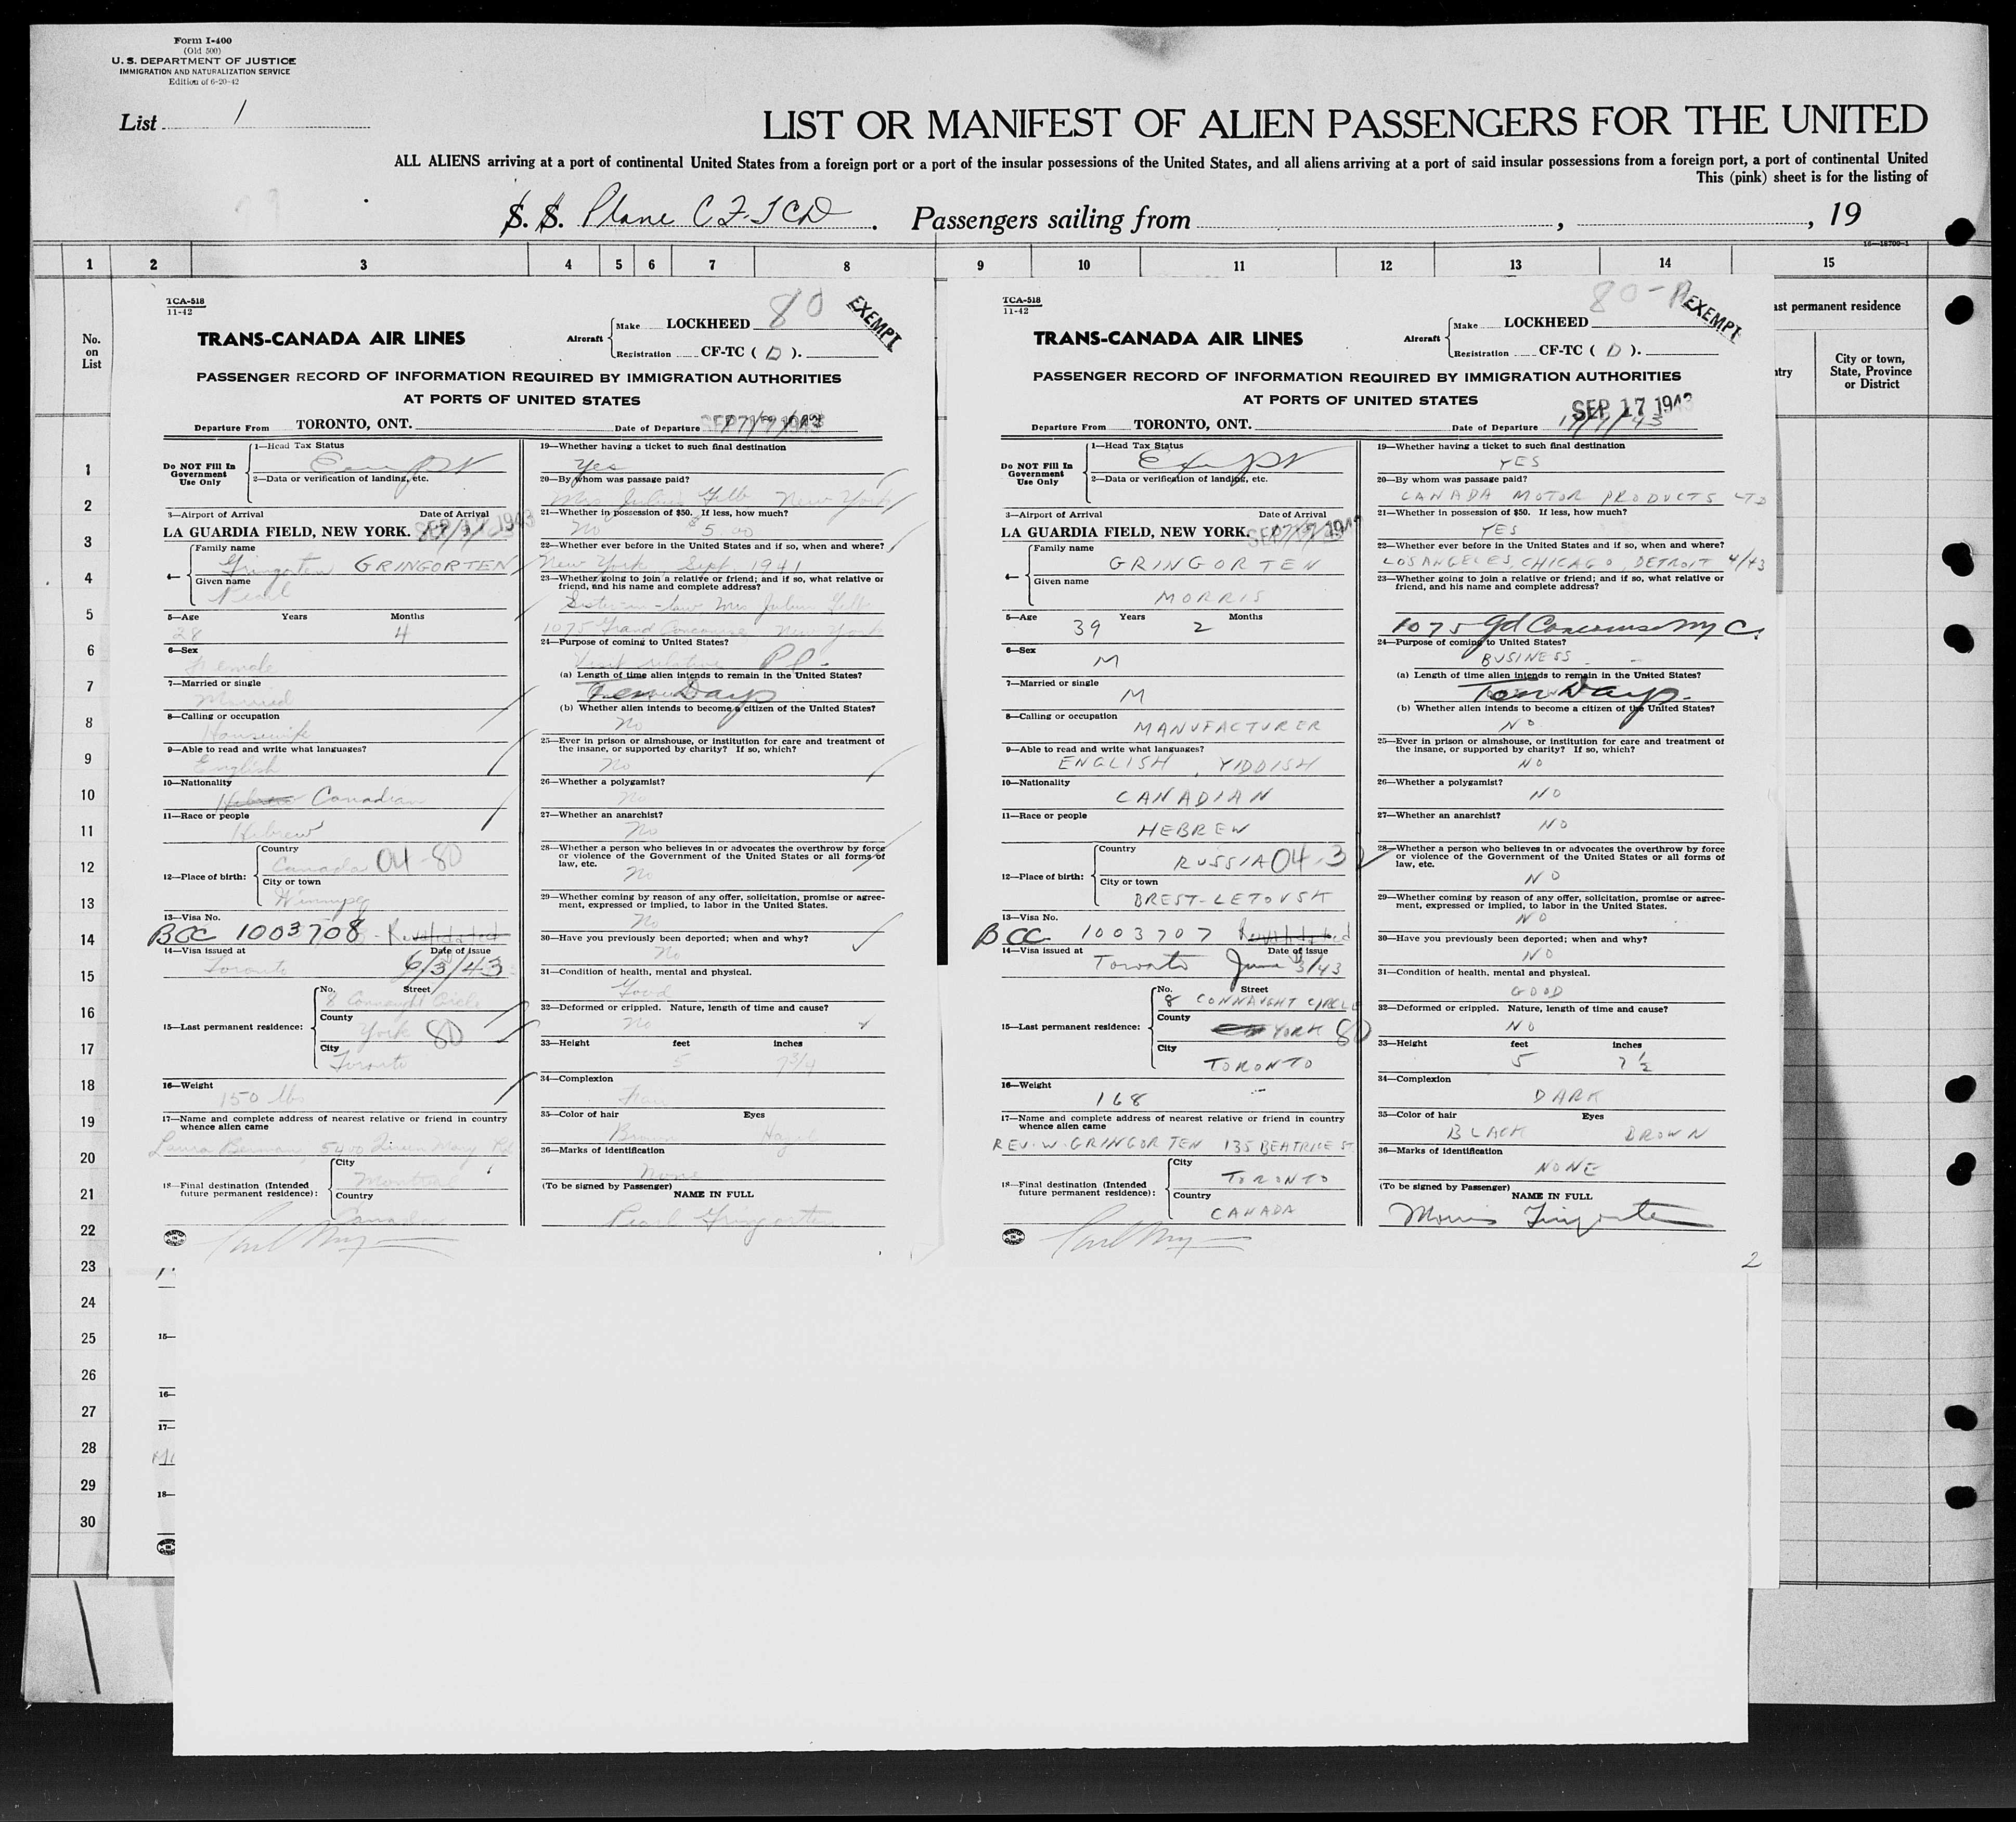 Form I-400
(Old 500)
U. S. DEPARTMENT OF JUSTICE
IMMIGRATION AND NATURALIZATION SERVICE
Edition of 6-20-42
List 1
LIST OR MANIFEST OF ALIEN PASSENGERS FOR THE UNITED
ALL ALIENS arriving at a port of continental United States from a foreign port or a port of the insular possessions of the United States, and all aliens arriving at a port of said insular possessions from a foreign port, a port of continental United
This (pink) sheet is for the listing of
S. S. Plane CF-TCD. Passengers sailing from , , 19
16—18700-1
1 2 3 4 5 6 7 8 9 10 11 12 13 14 15
No.
on
List
1
2
3
4
5
6
7
8
9
10
11
12
13
14
15
16
17
18
19
20
21
22
23
24
25
26
27
28
29
30
TCA-518
11-42
80
EXEMPT
TRANS-CANADA AIR LINES
Aircraft
Make LOCKHEED
Registration CF-TC ( D ).
PASSENGER RECORD OF INFORMATION REQUIRED BY IMMIGRATION AUTHORITIES
AT PORTS OF UNITED STATES
Departure From TORONTO, ONT. Date of Departure SEP 17 1943 17/9/43
Do NOT Fill In
Government
Use Only
1—Head Tax Status
Exempt
2—Data or verification of landing, etc.
3—Airport of Arrival Date of Arrival
LA GUARDIA FIELD, NEW YORK. SEP 17 1943 17/9/43
4—
Family name
Gringorten GRINGORTEN
Given name
Pearl
5—Age Years Months
28 4
6—Sex
Female
7—Married or single
Married
8—Calling or occupation
Housewife
9—Able to read and write what languages?
English
10—Nationality
Hebrew Canadian
11—Race or people
Hebrew
12—Place of birth:
Country
Canada 04-80
City or town
Winnipeg
13—Visa No.
BCC 1003708 - Revalidated
14—Visa issued at Date of issue
Toronto 6/3/43
15—Last permanent residence:
No. Street
8 Connaught Circle
County
York 80
City
Toronto
16—Weight
150 lbs
17—Name and complete address of nearest relative or friend in country
whence alien came
Laura Berman, 5400 Queen Mary Rd
18—Final destination (Intended
future permanent residence):
City
Montreal
Country
Canada
19—Whether having a ticket to such final destination
Yes
20—By whom was passage paid?
Mrs Julius Gelb New York
21—Whether in possession of $50. If less, how much?
No $5 00
22—Whether ever before in the United States and if so, when and where?
New York Sept. 1941
23—Whether going to join a relative or friend; and if so, what relative or
friend, and his name and complete address?
Sister-in-law Mrs Julius Gelb
1075 Grand Concourse New York
24—Purpose of coming to United States?
Visit relative Pl-
(a) Length of time alien intends to remain in the United States?
Ten Days
(b) Whether alien intends to become a citizen of the United States?
No
25—Ever in prison or almshouse, or institution for care and treatment of
the insane, or supported by charity? If so, which?
No
26—Whether a polygamist?
No
27—Whether an anarchist?
No
28—Whether a person who believes in or advocates the overthrow by force
or violence of the Government of the United States or all forms of
law, etc.
No
29—Whether coming by reason of any offer, solicitation, promise or agree-
ment, expressed or implied, to labor in the United States.
No
30—Have you previously been deported; when and why?
No
31—Condition of health, mental and physical.
Good
32—Deformed or crippled. Nature, length of time and cause?
No
33—Height feet inches
5 7 3/4
34—Complexion
Fair
35—Color of hair Eyes
Brown Hazel
36—Marks of identification
None
(To be signed by Passenger)
NAME IN FULL
Pearl Gringorten
TCA-518
11-42
80-A
EXEMPT
TRANS-CANADA AIR LINES
Aircraft
Make LOCKHEED
Registration CF-TC ( D ).
PASSENGER RECORD OF INFORMATION REQUIRED BY IMMIGRATION AUTHORITIES
AT PORTS OF UNITED STATES
Departure From TORONTO, ONT. Date of Departure SEP 17 1943 17/9/43
Do NOT Fill In
Government
Use Only
1—Head Tax Status
Exempt
2—Data or verification of landing, etc.
3—Airport of Arrival Date of Arrival
LA GUARDIA FIELD, NEW YORK. SEP 17 1943
4—
Family name
GRINGORTEN
Given name
MORRIS
5—Age Years Months
39 2
6—Sex
M
7—Married or single
M
8—Calling or occupation
MANUFACTURER
9—Able to read and write what languages?
ENGLISH, YIDDISH
10—Nationality
CANADIAN
11—Race or people
HEBREW
12—Place of birth:
Country
RUSSIA 04-32
City or town
BREST-LETOVSK
13—Visa No.
BCC 1003707 Revalidated
14—Visa issued at Date of issue
Toronto June 3/43
15—Last permanent residence:
No. Street
8 CONNAUGHT CIRCLE
County
YORK 80
City
TORONTO
16—Weight
168
17—Name and complete address of nearest relative or friend in country
whence alien came
REV. W. GRINGORTEN 135 BEATRICE ST.
18—Final destination (Intended
future permanent residence):
City
TORONTO
Country
CANADA
19—Whether having a ticket to such final destination
YES
20—By whom was passage paid?
CANADA MOTOR PRODUCTS LTD
21—Whether in possession of $50. If less, how much?
YES
22—Whether ever before in the United States and if so, when and where?
LOS ANGELES, CHICAGO, DETROIT 4/43
23—Whether going to join a relative or friend; and if so, what relative or
friend, and his name and complete address?
1075 Gd Concourse NYC.
24—Purpose of coming to United States?
BUSINESS
(a) Length of time alien intends to remain in the United States?
Ten Days.
(b) Whether alien intends to become a citizen of the United States?
NO
25—Ever in prison or almshouse, or institution for care and treatment of
the insane, or supported by charity? If so, which?
NO
26—Whether a polygamist?
NO
27—Whether an anarchist?
NO
28—Whether a person who believes in or advocates the overthrow by force
or violence of the Government of the United States or all forms of
law, etc.
NO
29—Whether coming by reason of any offer, solicitation, promise or agree-
ment, expressed or implied, to labor in the United States.
NO
30—Have you previously been deported; when and why?
NO
31—Condition of health, mental and physical.
GOOD
32—Deformed or crippled. Nature, length of time and cause?
NO
33—Height feet inches
5 7 1/2
34—Complexion
DARK
35—Color of hair Eyes
BLACK BROWN
36—Marks of identification
NONE
(To be signed by Passenger)
NAME IN FULL
Morris Gringorten
2
ast permanent residence
ntry
City or town,
State, Province
or District
15—
16—
17—
18—